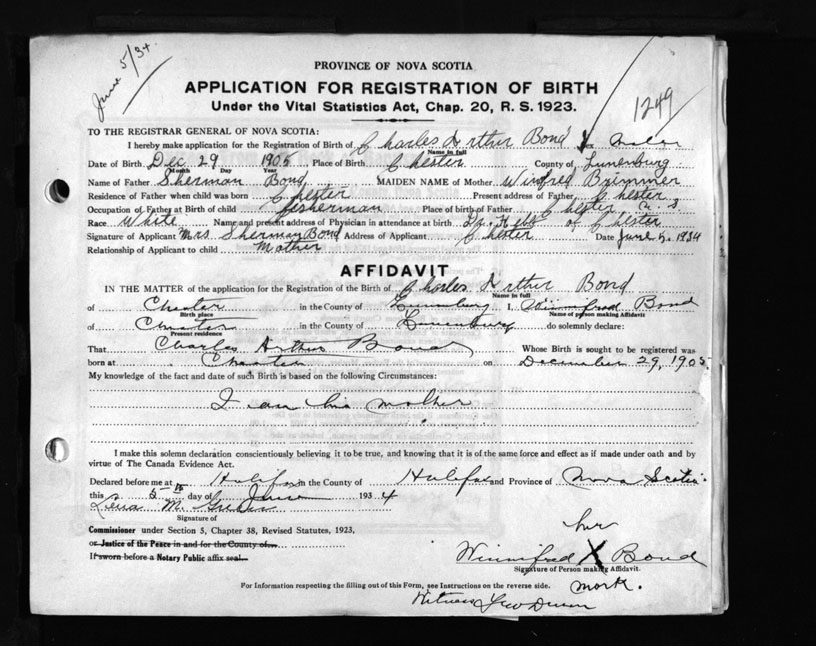 June 5/34.
PROVINCE OF NOVA SCOTIA
APPLICATION FOR REGISTRATION OF BIRTH
Under the Vital Statistics Act, Chap. 20, R. S. 1923.
1249
TO THE REGISTRAR GENERAL OF NOVA SCOTIA:
I hereby make application for the Registration of Birth of Charles Arthur Bond Sex Male
Name in full
Date of Birth Dec 29 1905 Place of Birth Chester County of Lunenburg
Month Day Year
Name of Father Sherman Bond MAIDEN NAME of Mother Winifred Brimmer
Residence of Father when child was born Chester Present address of Father Chester
Occupation of Father at Birth of child fisherman Place of birth of Father Chester N. S
Race White Name and present address of Physician in attendance at birth Dr. Hebb of Chester
Signature of Applicant Mrs Sherman Bond Address of Applicant Chester Date June 5, 1934
Relationship of Applicant to child Mother
AFFIDAVIT
IN THE MATTER of the application for the Registration of the Birth of Charles Arthur Bond
Name in full
of Chester in the County of Lunenburg I, Winnifred Bond
Birth place Name of person making Affidavits
of Chester in the County of Lunenburg do solemnly declare:
Present residence
That Charles Arthur Bond Whose Birth is sought to be registered was
born at Chester on December 29, 1905.
My knowledge of the fact and date of such Birth is based on the following Circumstances:
I am his mother
I make this solemn declaration conscientiously believing it to be true, and knowing that it is of the same force and effect as if made under oath and by
virtue of The Canada Evidence Act.
Declared before me at Halifax in the County of Halifax and Province of Nova Scotia
this 5th day of June 1934
Lena M.
Signature of
Commissioner under Section 5, Chapter 38, Revised Statutes, 1923,
or Justice of the Peace in and for the County of
If sworn before a Notary Public affix seal.
her
Winnifred X Bond
Signature of Person making Affidavit.
mark.
For Information respecting the filling out of this Form, see Instructions on the reverse side.
Witness